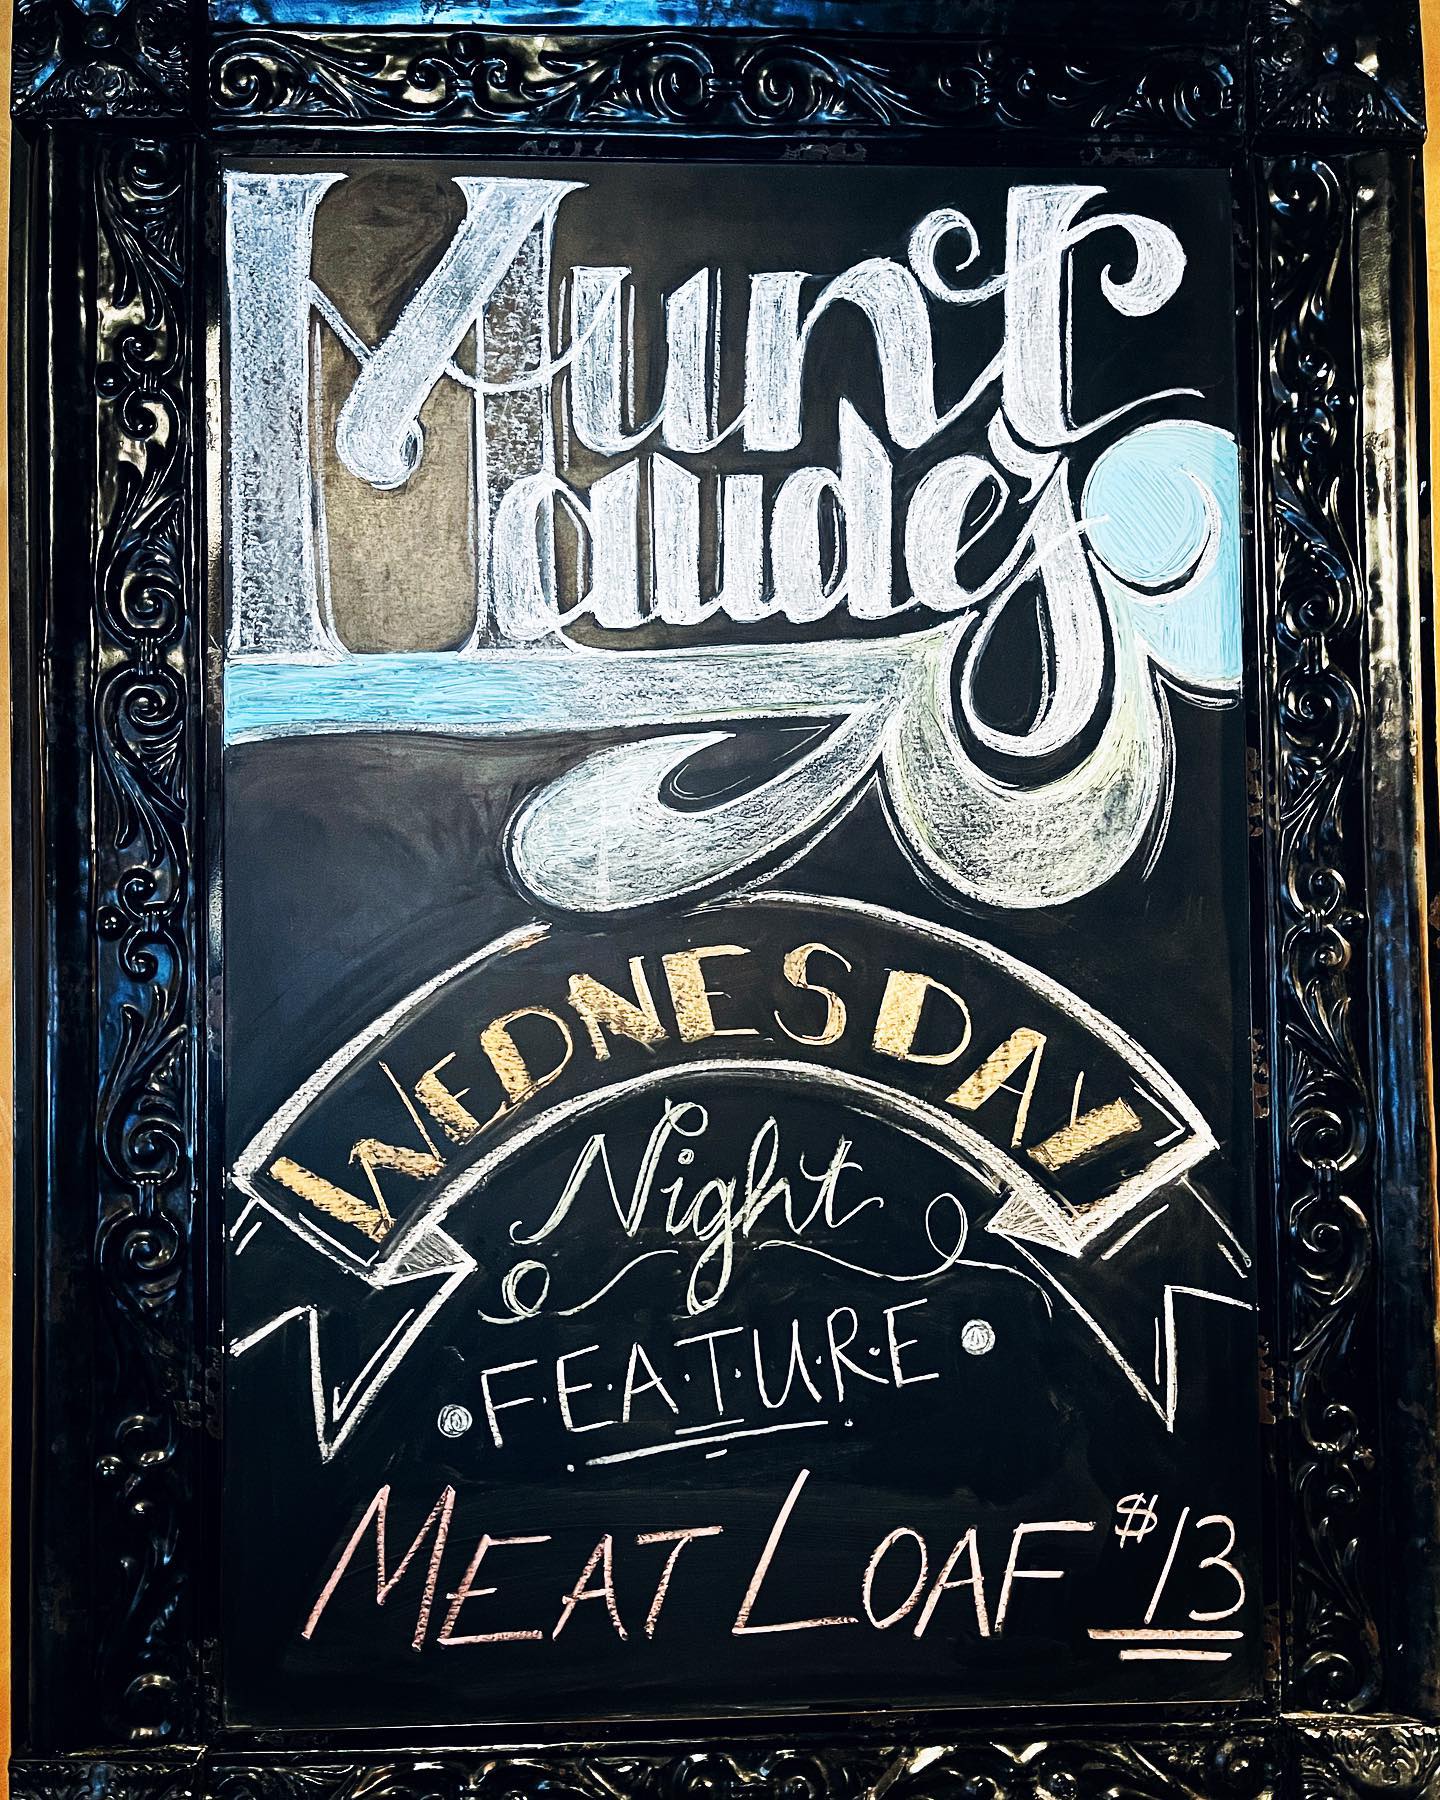 Aunt
Maude's
WEDNESDAY
Night
F·E·A·T·U·R·E
MEAT LOAF $13